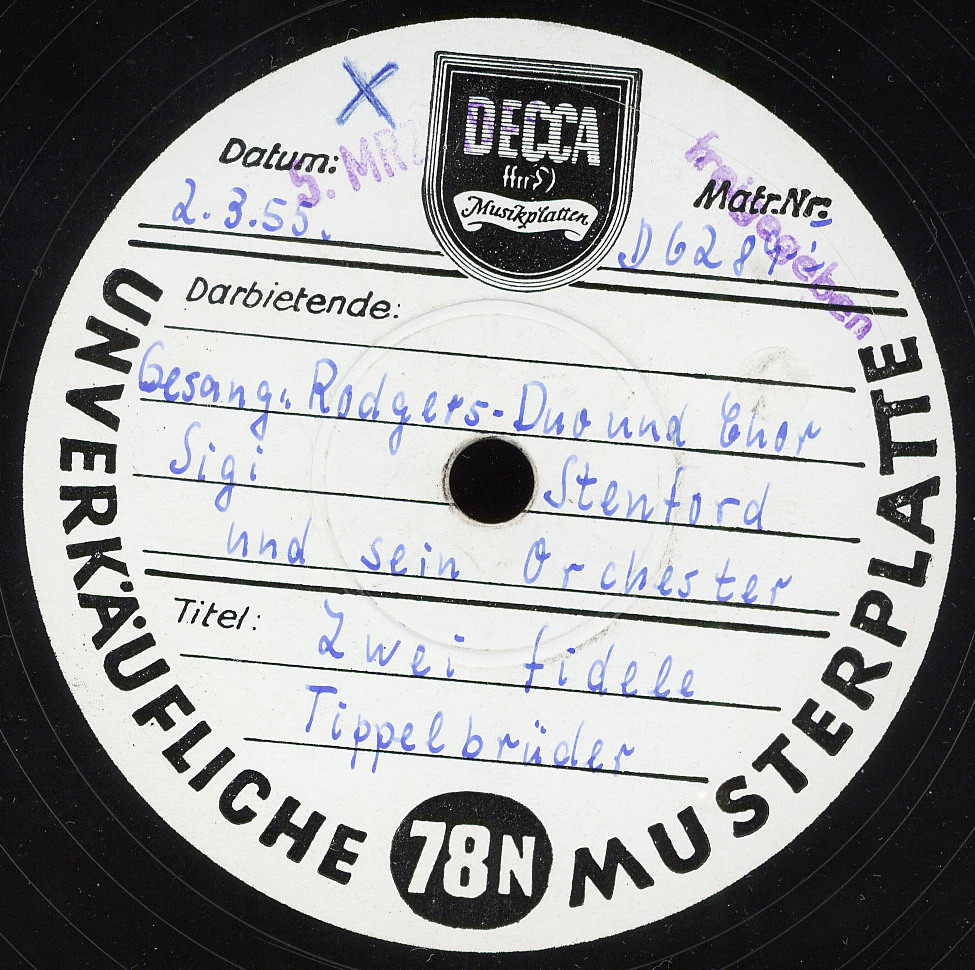 DECCA
ffrr
Musikplatten
Datum:
5. MRZ
2.3.55.
Matr.Nr.:
freigegeben
Darbietende:
Gesang: Rodgers-Duo und Chor
Sigi Stenford
und sein Orchester
Titel:
Zwei fidele
Tippelbrüder
UNVERKÄUFLICHE
78N
MUSTERPLATTE